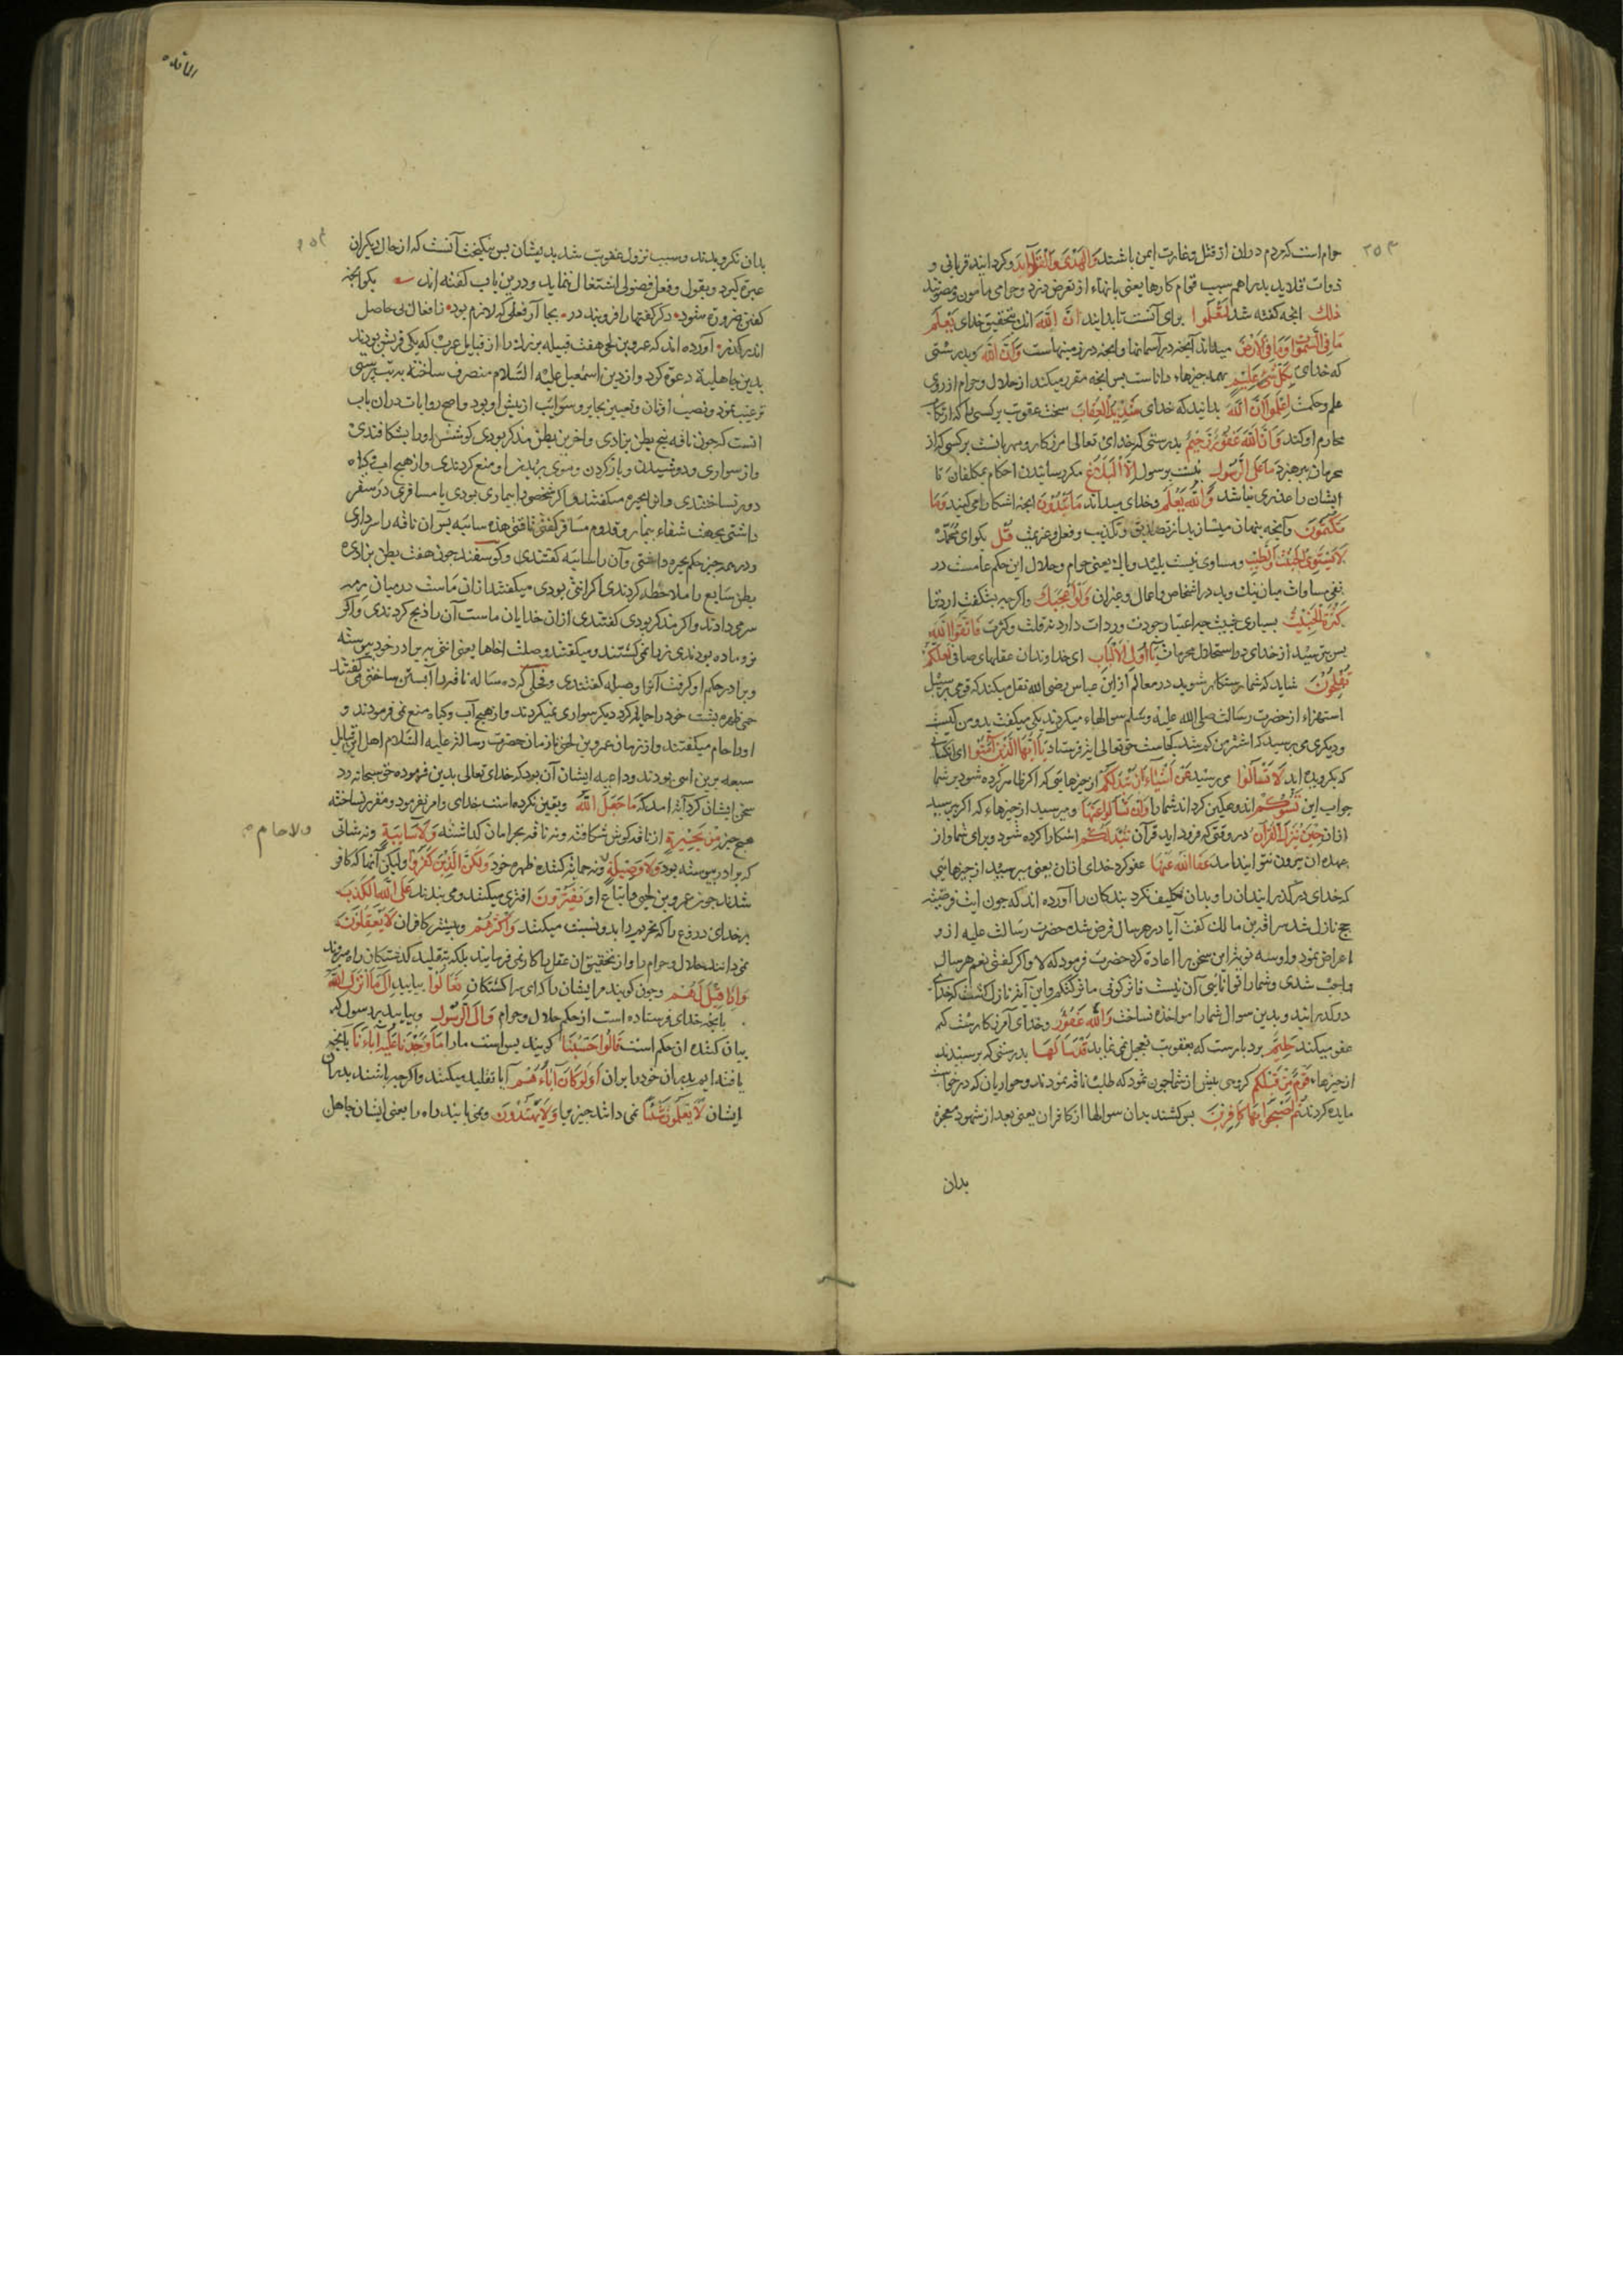 ۲۵۳
حرام است که مردم دران از قتل و غارت ایمن باشند وَالْهَدْيَ وَالْقَلَائِدَ وکردانید قربانی و
ذوات قلاید بدراهم سبب قوام کارها یعنی بانهاء از تعرض دزد و حرامی مامون و مصونند
ذلك انجه کفته شد لِتَعْلَمُوا برای آنست تا بدانید اَنَّ اللَّهَ انك بتحقیق خدای يَعْلَمُ
مَا فِي السَّمٰوَاتِ وَمَا فِي الْاَرْضِ میداند آنجه در آسمانها و انجه در زمینهاست وَاَنَّ اللَّهَ وبدرستی
که خدای بِكُلِّ شَيْءٍ عَلِيمٌ بهمه جیزها داناست بس انجه مقرر میکند از حلال و حرام از روی
علم و حکمت اِعْلَمُوا اَنَّ اللَّهَ بدانید که خدای شَدِيدُ الْعِقَابِ سخت عقوبت بر کسی را که ارتکاب
محارم او کند وَاَنَّ اللَّهَ غَفُورٌ رَحِيمٌ بدرستی که خدای تعالی امرزکار و مهربانست بر کسی که از
محرمات ببرهیزد مَا عَلَى الرَّسُولِ نیست بر رسول اِلَّا الْبَلَاغُ مکر رسانیدن احکام بمکلفان تا
ایشان را عذری نباشد وَاللَّهُ يَعْلَمُ وخدای میداند مَا تُبْدُونَ انجه اشکارا می کنید وَمَا
تَكْتُمُونَ وآنجه بنهان میسازید از تصدیق و تکذیب و فعل و عزیمت قُلْ بکو ای محمد
لَا يَسْتَوِي الْخَبِيثُ وَالطَّيِّبُ ومساوی نیست بلید و باك یعنی حرام و حلال این حکم عامست در
نفی مساوات میان نیك و بد در اشخاص و اعمال و غیران وَلَوْ اَعْجَبَكَ واکر جه بشکفت اردترا
كَثْرَةُ الْخَبِيثِ بسیاری خبیث جه اعتبار جودت و رداءت دارد نه قلت و کثرت فَاتَّقُوا اللَّهَ
بس بترسید از خدای در استحلال محرمات يَا اُولِي الْاَلْبَابِ ای خداوندان عقلهای صافی لَعَلَّكُمْ
تُفْلِحُونَ شاید که شما رستکار شوید در معالم از ابن عباس رضی الله نقل میکند که قومی بر سبیل
استهزاء از حضرت رسالت صلی الله علیه وسلم سوالها میکردند یکی میکفت بدر من کیست
و دیکری می برسید که اشتر من کم شد کجاست حق تعالی ایة فرستاد يَا اَيُّهَا الَّذِينَ اٰمَنُوا ای انکسانی
که بکرویده اید لَا تَسْاَلُوا می برسید عَنْ اَشْيَاءَ اِنْ تُبْدَ لَكُمْ از جیزهایی که اکر ظاهر کرده شود بر شما
جواب این تَسُؤْكُمْ اندوهکین کرداند شما را وَاِنْ تَسْاَلُوا عَنْهَا و می برسید از جیزهاء که اکر برسید
ازان حِينَ يُنَزَّلُ الْقُرْاٰنُ در وقتی که فرود اید قرآن تُبْدَ لَكُمْ اشکارا کرده شود برای شما و از
عهده ان بیرون نتوانید امد عَفَا اللَّهُ عَنْهَا عفو کرد خدای ازان یعنی می برسید از جیزهایی
که خدای در کذرانید ان را و بدان تکلیف نکرد بندکان را آورده اند که جون ایت فرضیت
حج نازل شد سراقه بن مالك کفت آیا در هر سال فرض شده حضرت رسالت علیه ازو
اعراض نمود و او سه نوبت این سخن را اعادة کرد حضرت فرمود که لا و اکر کفتی نعم هر سال
واجب شدی و شما را توانائی آن نیست
در کذرانید و بدین سوال شما را مواخذه نساخت وَاللَّهُ غَفُورٌ وخدای آمرزکارست که
عفو میکند حَلِيمٌ بردبارست که بعقوبت تعجیل نمی نماید قَدْ سَاَلَهَا بدرستی که برسیدند
از جیزهاء قَوْمٌ مِنْ قَبْلِكُمْ کروهی بیش از شما جون ثمود که طلب ناقه نمودند و حواریان که درخواست
مایده کردند ثُمَّ اَصْبَحُوا بِهَا كَافِرِينَ بس کشتند بدان سوالها از کافران یعنی بعد از شهود معجزه
بدان
المائده
بدان نکرویدند و سبب نزول عقوبت شد بدیشان بس نیکبخت آنست که از حال دیکران
عبرة کیرد و بقول و فعل فضولی اشتغال ننماید و درین باب کفته اند بکو انجه
کفتن ضرورة شود دکر کفتها را فرو بند در بجا آر فعلی که لازم بود ز افعال بی حاصل
اندر کذر آورده اند که عمرو بن لحی هفت قبیله بزرك را از قبایل عرب که یکی قریش بودند
بدین جاهلیة دعوة کرد و از دین اسمعیل علیه السلام منصرف ساخته به بت برستی
ترغیب نمود و نصب اوثان و تعیین بحایر و سوایب از بیش او بود و اصح روایات دران باب
انست که جون ناقه بنج بطن بزادی و اخرین بطن مذکر بودی کوشش او را بشکافتندی
و از سواری و دوشیدن و بار کردن و موی بریدن او منع کردندی و از هیج اب و کیاه
دور نساختندی و انرا بحیره میکفتند و اکر شخصی را بیماری بودی یا مسافری در سفر
داشتی بجهت شفاء بیمار و قدوم مسافر کفتی ناقتی هذه سائبه بس آن ناقه را سر دادی
و در همه جیز حکم بحیره داشتی و آن را سائبه کفتندی و کوسفند جون هفت بطن بزادی
بطن سابع را ملاحظه کردندی اکر انثی بودی میکفتند ازان ماست در میان رمه
سر میدادند و اکر مذکر بودی کفتندی ازان خدایان ماست آن را ذبح کردندی و اکر
نر و ماده بودندی نر را نمی کشتند و میکفتند وصلت اخاها یعنی انثی به برادر خود بیوسته
و برادر حکم او کرفت آنرا وصیله کفتندی و فحلی که ده ساله ناقه را آبستن ساختی می کفتند
حمی ظهره بشت خود را حمایة کرد دیکر سواری نمیکردند و از هیج آب و کیاه منع نمی فرمودند و
او را حام میکفتند و از زمان عمرو بن لحی تا زمان حضرت رسالت علیه السلام اهل این قبایل
سبعه برین اسم بودند و داعیه ایشان آن بود که خدای تعالی بدین فرموده حق سبحانه رد
سخن ایشان کرد آیة امد که مَا جَعَلَ اللَّهُ ویقین نکرده است خدای و امر نفرمود و مقرر نساخته
هیج جیز مِنْ بَحِيرَةٍ از ناقه کوش شکافته و نه ناقه بحرامان کذاشته وَلَا سَائِبَةٍ ونه شاتی
ولا حام م
که برادر بیوسته بود وَلَا وَصِيلَةٍ ونه حمایة کننده ظهره خود وَلٰكِنَّ الَّذِينَ كَفَرُوا ولیکن آنها که کافر
شدند جون عمرو بن لحی و اتباع او يَفْتَرُونَ افتری میکنند و می بندند عَلَى اللَّهِ الْكَذِبَ
بر خدای دروغ را که تحریم را بدو نسبت میکنند وَاَكْثَرُهُمْ و بیشتر کافران لَا يَعْقِلُونَ
نمی دانند حلال و حرام را و از تحقیق ان عقل را کار نمی فرمایند بلکه بتقلید کذشتکان راه میروند
وَاِذَا قِيلَ لَهُمْ وجون کویند مر ایشان را که ای سر کشتکان تَعَالَوْا بیایید اِلَى مَا اَنْزَلَ اللَّهُ
بانجه خدای فرستاده است از حکم حلال و حرام وَاِلَى الرَّسُولِ وبیایید برسول که
بیان کننده ان حکم است قَالُوا حَسْبُنَا کویند بس است مارا مَا وَجَدْنَا عَلَيْهِ اٰبَاءَنَا بانجه
یافته ایم بدران خود را بران اَوَلَوْ كَانَ اٰبَاؤُهُمْ آیا تقلید میکنند و اکر جه باشند بدران
ایشان لَا يَعْلَمُونَ شَيْئًا نمی دانند جیزی را وَلَا يَهْتَدُونَ ونمی یابند راه را یعنی ایشان جاهل